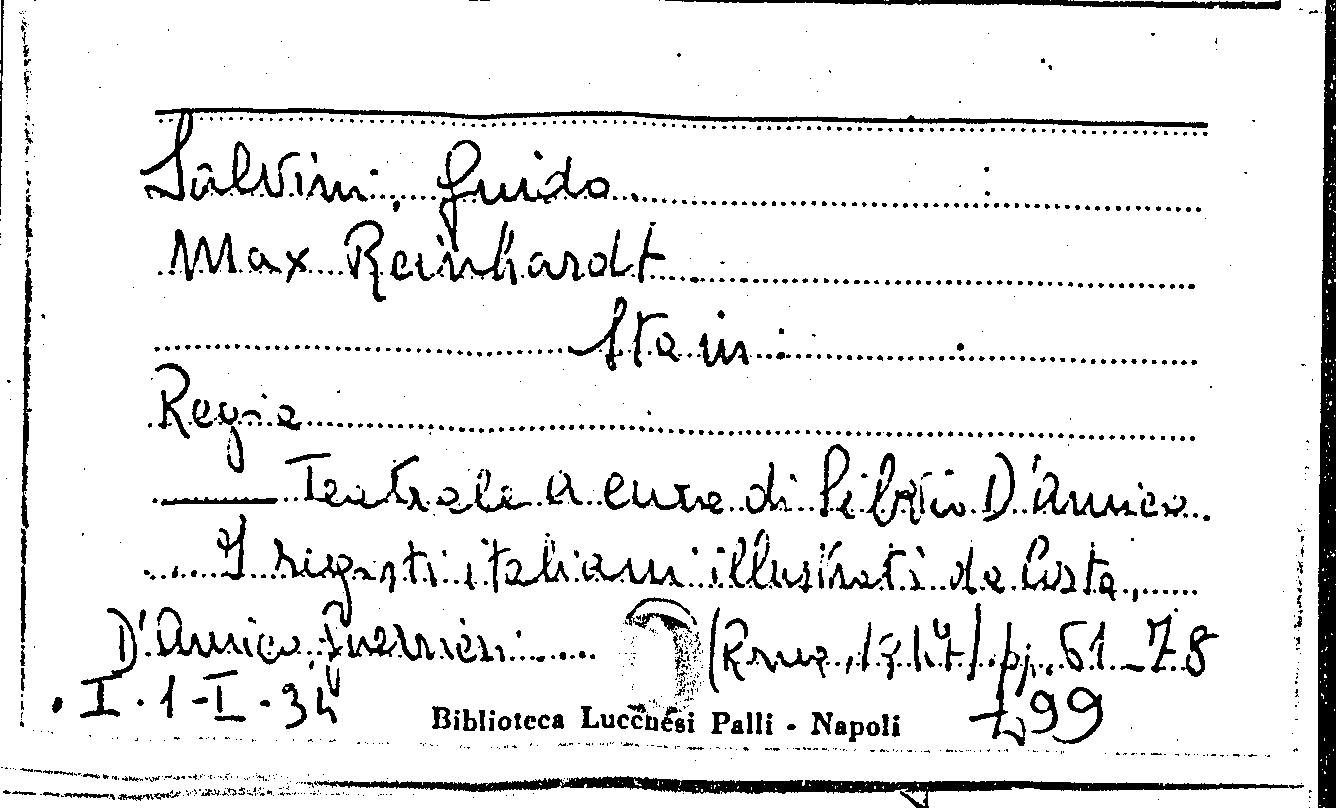 Salvini, Guido.
Max Reinhardt
Sta in:
Regia
Teatrale a cura di Silvio D'Amico.
I registi italiani illustrati da Costa,
D'Amico, Guerrieri (Roma, 1947) pp. 61-78
I.1-I-34
Biblioteca Lucchesi Palli - Napoli
99